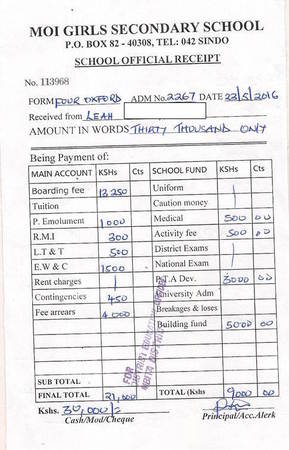 MOI GIRLS SECONDARY SCHOOL
P.O. BOX 82 - 40308, TEL: 042 SINDO
SCHOOL OFFICIAL RECEIPT
No. 113968
FORM FOUR OXFORD ADM No. 2267 DATE 23/5/2016
Received from LEAH
AMOUNT IN WORDS THIRTY THOUSAND ONLY
Being Payment of:
MAIN ACCOUNT KSHs Cts SCHOOL FUND KSHs Cts
Boarding fee 13250 Uniform
Tuition Caution money
P. Emolument 1000 Medical 500 00
R.M.I 300 Activity fee 500 00
L.T & T 500 District Exams
E.W & C 1500 National Exam
Rent charges P.T.A Dev. 3000 00
Contingencies 450 University Adm
Fee arrears 4000 Breakages & loses
Building fund 5000 00
FOR
SUB TOTAL
FINAL TOTAL 21,000 TOTAL (Kshs 9000 00
Kshs. 30,000/=
Cash/Mod/Cheque Principal/Acc.Alerk